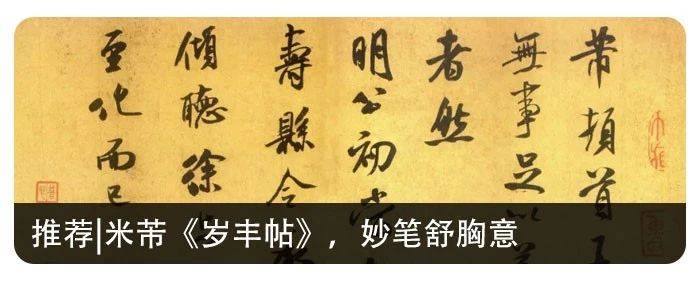 芾頓首
無事足以
者然
明公初
壽縣令
傾聽徐
至化而已
推荐|米芾《岁丰帖》，妙笔舒胸意